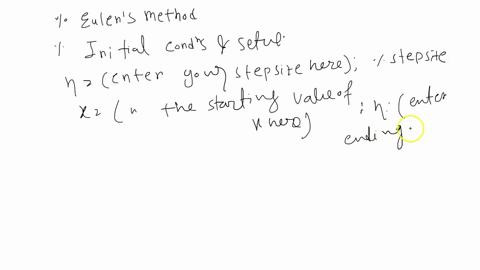 % Euler's method
% Initial condns & setup
η = (enter your stepsite here); % stepsite
x = (" the starting value of x here) : η: (enter ending